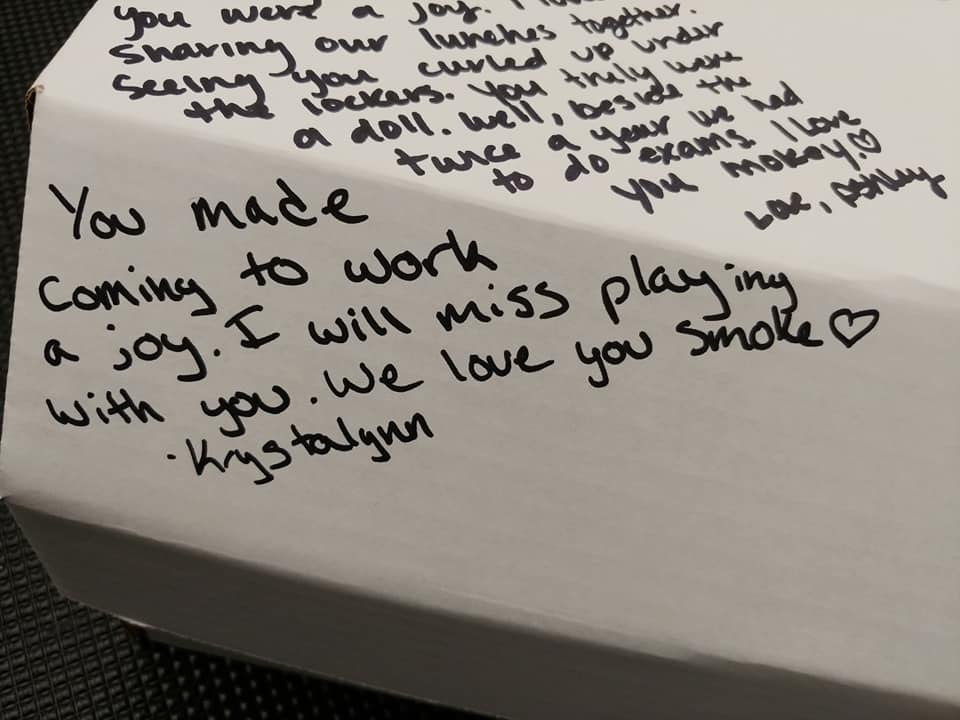 you were a joy. I
sharing our lunches together.
seeing you curled up under
the lockers. You truly were
a doll. Well, beside the
twice a year we had
to do exams. I love
you mokey!♡
Love, Ashley
You made
coming to work
a joy. I will miss playing
with you. We love you Smoke♡
·Krystalynn